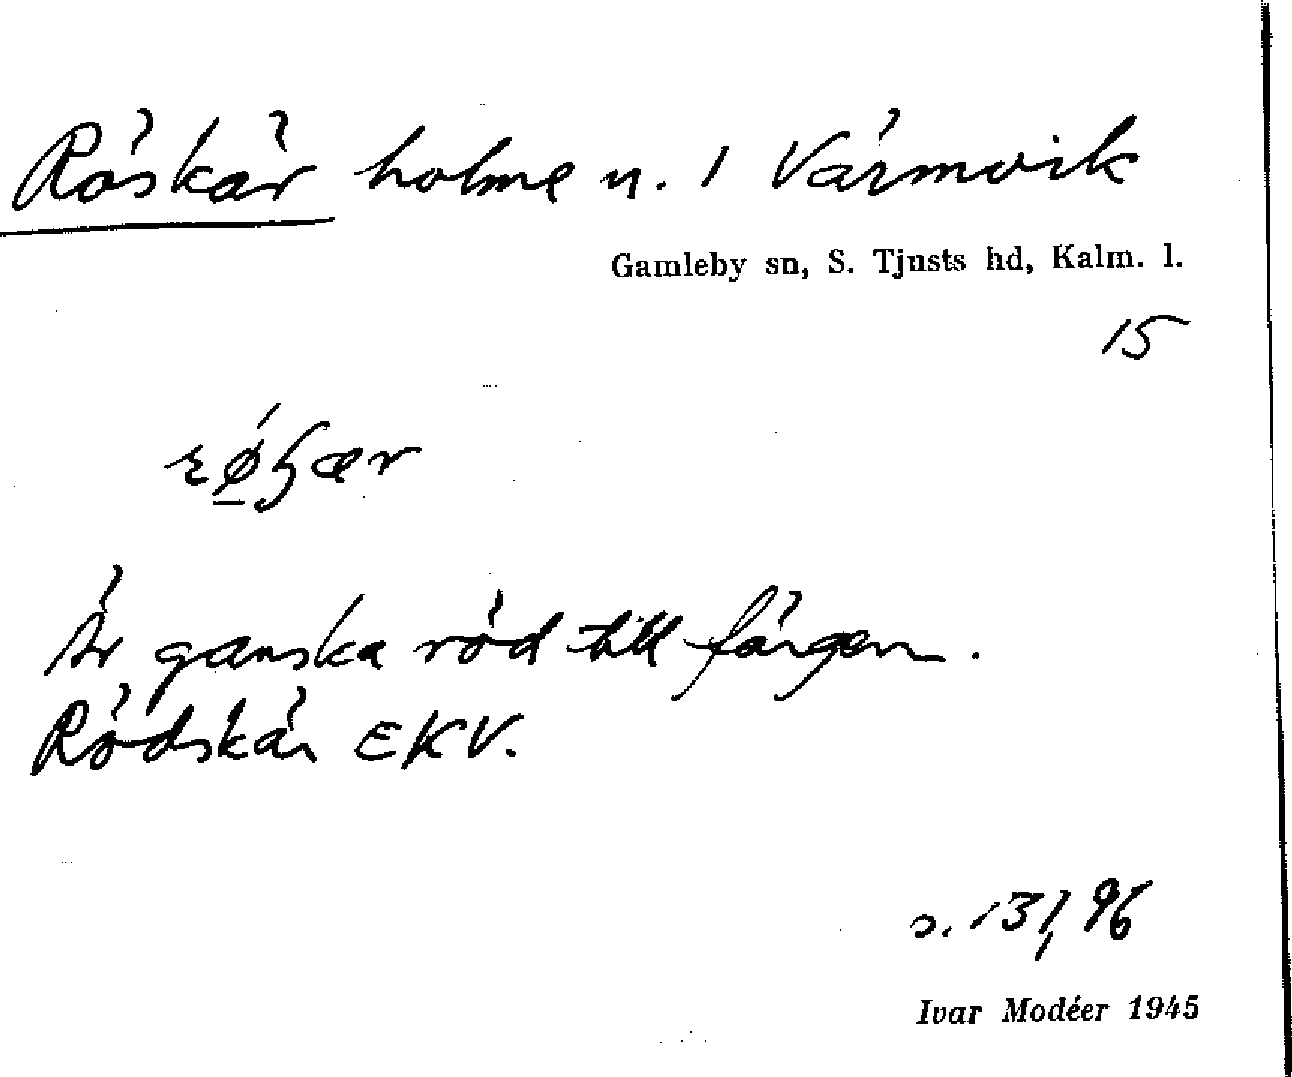 Röskär holme n. 1 Värmvik
Gamleby sn, S. Tjusts hd, Kalm. l.
15
Är ganska röd till färgen.
Rödskär EKV.
s. 131, 96
Ivar Modéer 1945